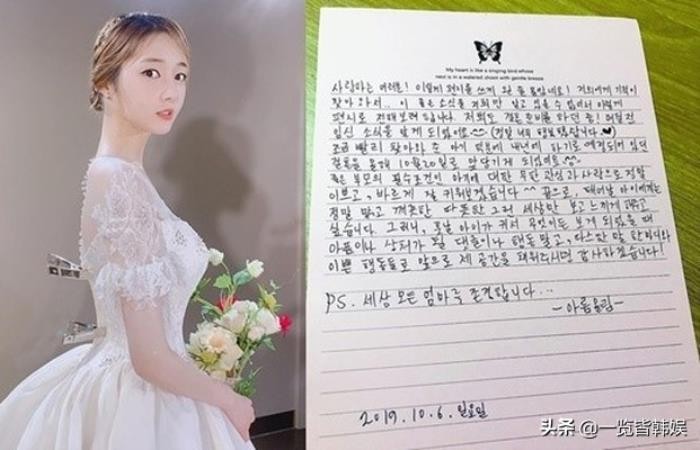 My heart is like a singing bird whose
is in a watered shoot with gentle breeze
사랑하는 여러분! 이렇게 편지를 쓰게 될 줄 몰랐네요! 저희에게 기적이
찾아와서.. 이 좋은 소식을 저희만 알고 있을 수 없어서 이렇게
편지로 전해보려 합니다. 저희도 결혼 준비를 하던 중! 어느날
임신 소식을 알게 되었어요^^ (정말 너무 행복했답니다.♥)
조금 빨리 찾아와 준 아기 덕분에 내년에 하기로 예정되어 있던
결혼을 올해 10월20일로 앞당기게 되었어요^^
좋은 부모의 필수조건인 아가에 대한 무한 관심과 사랑으로 정말
이쁘고, 바르게 잘 키워보겠습니다^^ 끝으로, 태어날 아이에게는
정말 맑고 깨끗한 따뜻한 그런 세상만 보고 느끼게 해주고
싶습니다. 그러니, 훗날 아이가 커서 무엇이든 보게 되었을 때
아픔이나 상처가 될 대화나 행동 말고, 다스한 말 한마디와
이쁜 행동들로 앞으로 제 공간을 채워주시면 감사하겠습니다!
PS. 세상 모든 엄마들 존경합니다...
-아름
2019. 10. 6. 일요일
头条 @一览皆韩娱